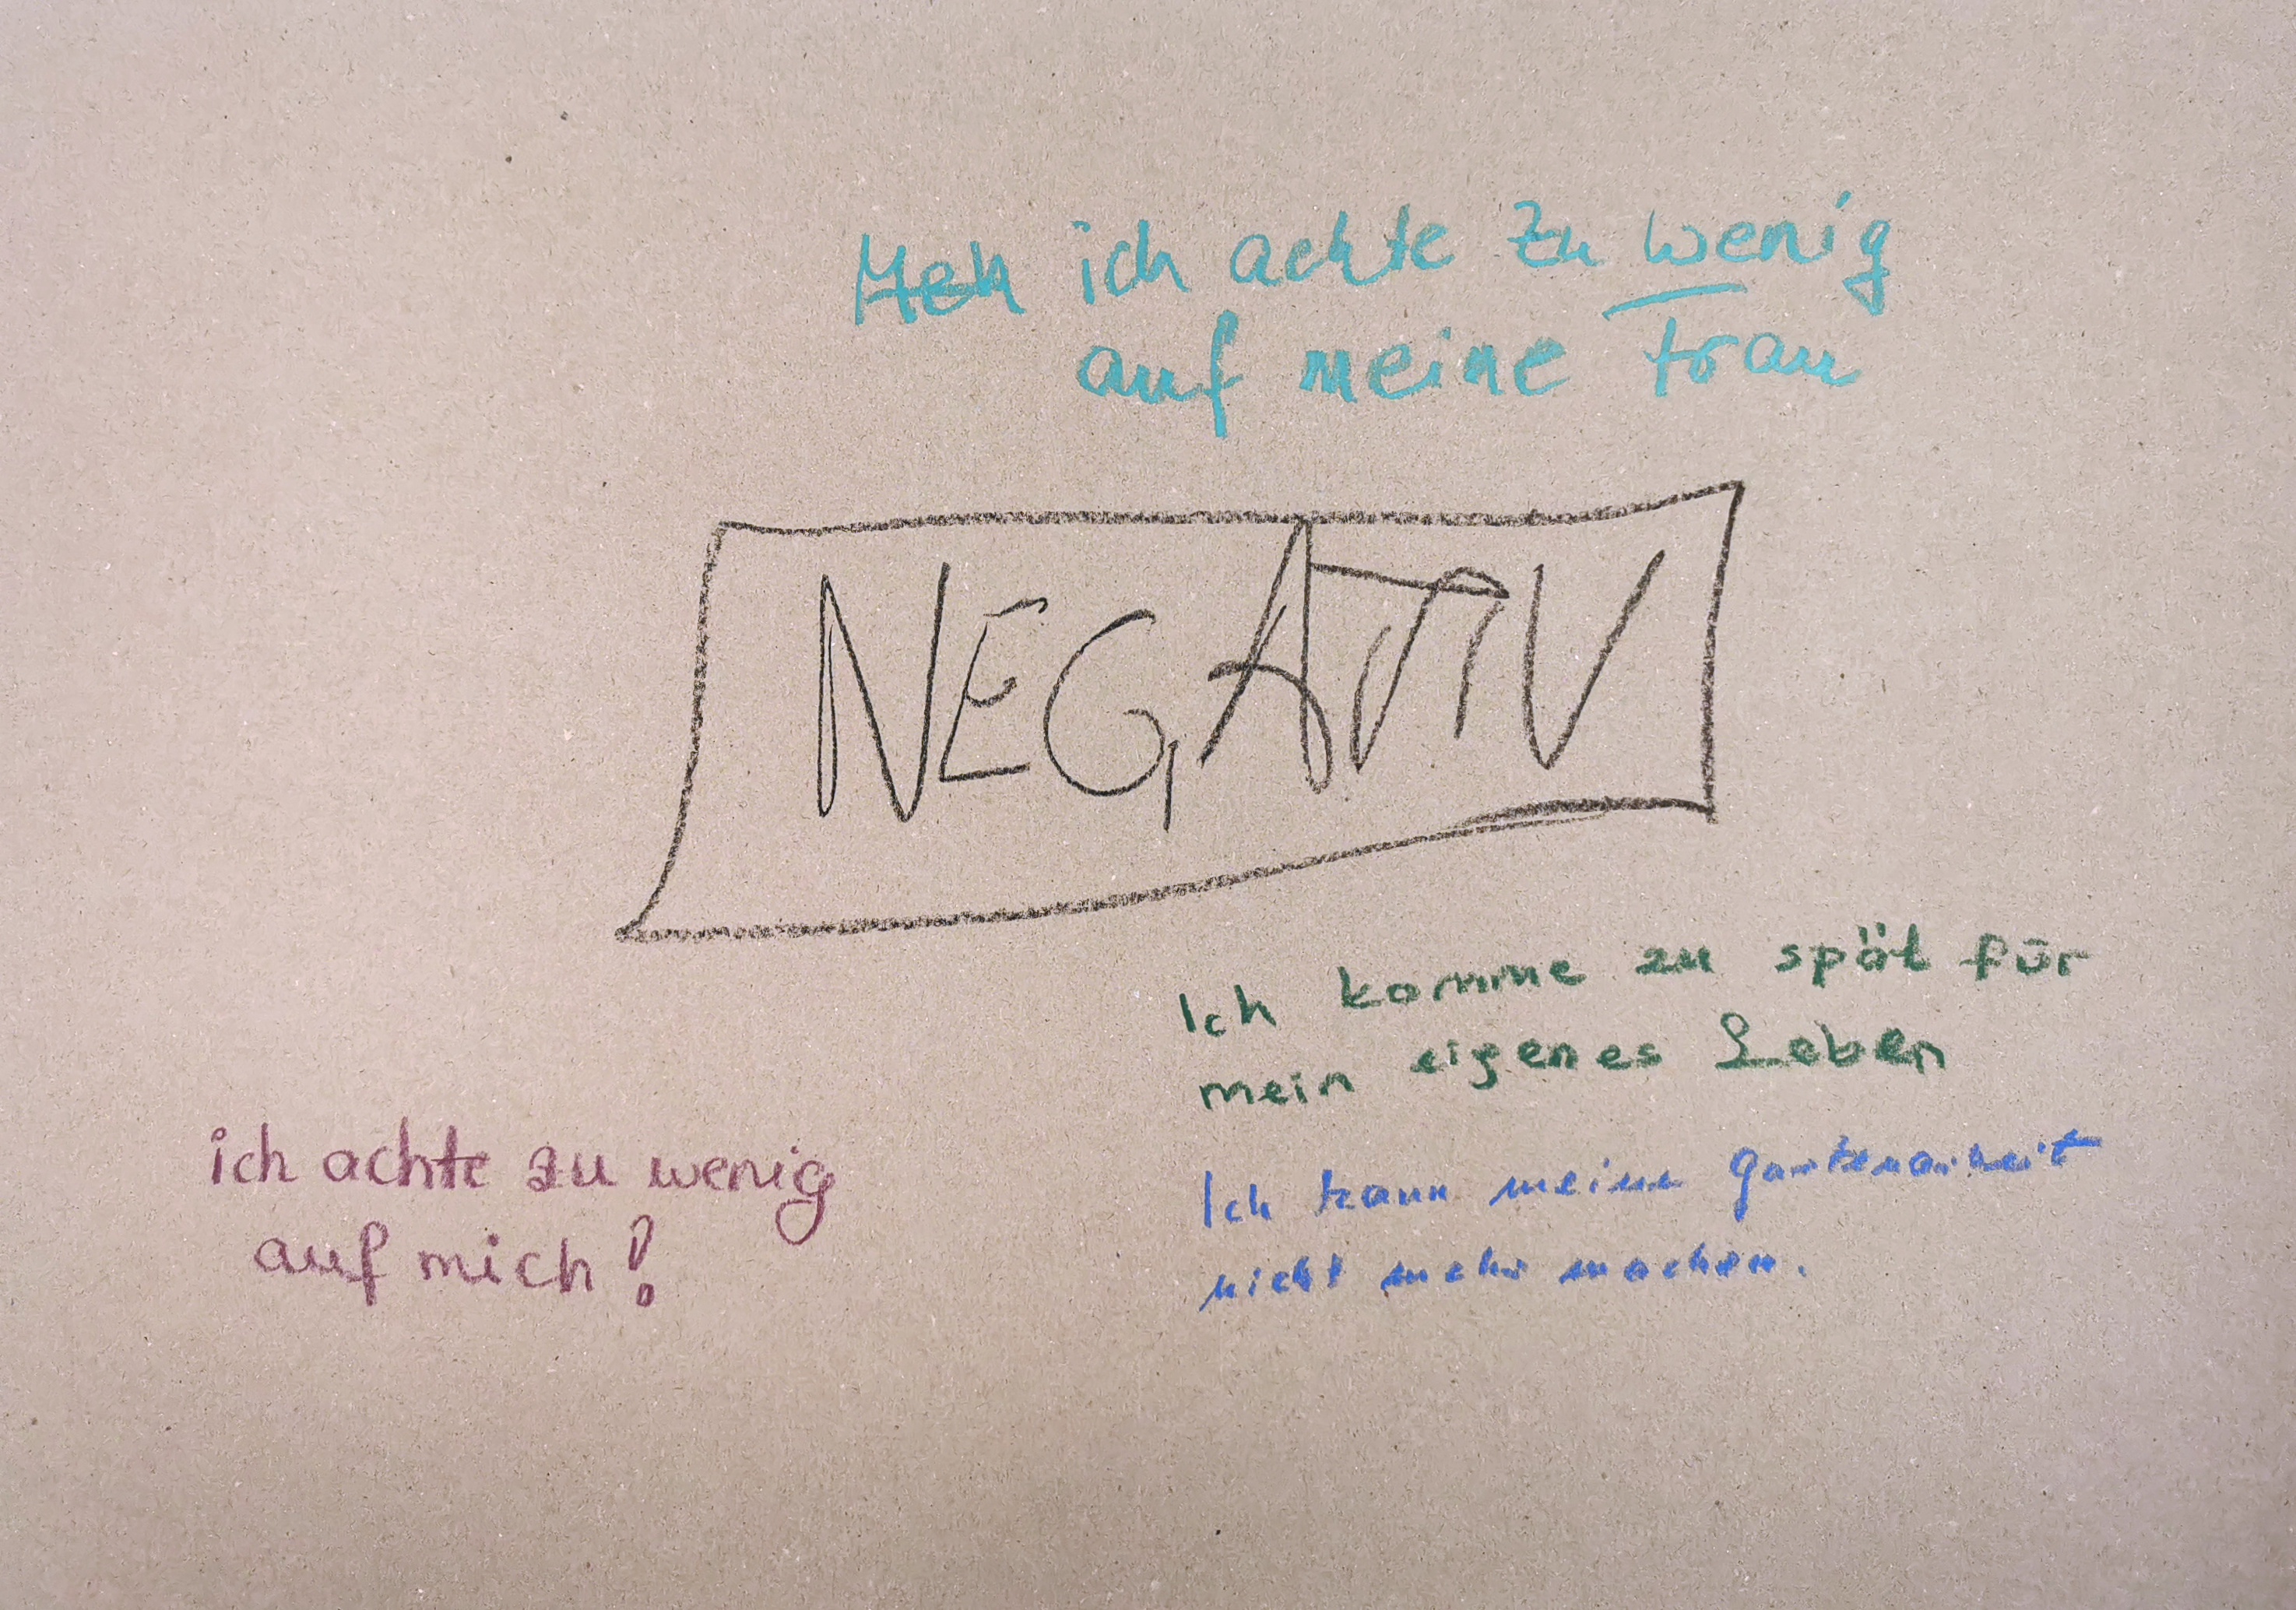 ich achte zu wenig
auf meine Frau
NEGATIV
Ich komme zu spät für
mein eigenes Leben
Ich kann meine Gartenarbeit
nicht mehr machen.
ich achte zu wenig
auf mich!